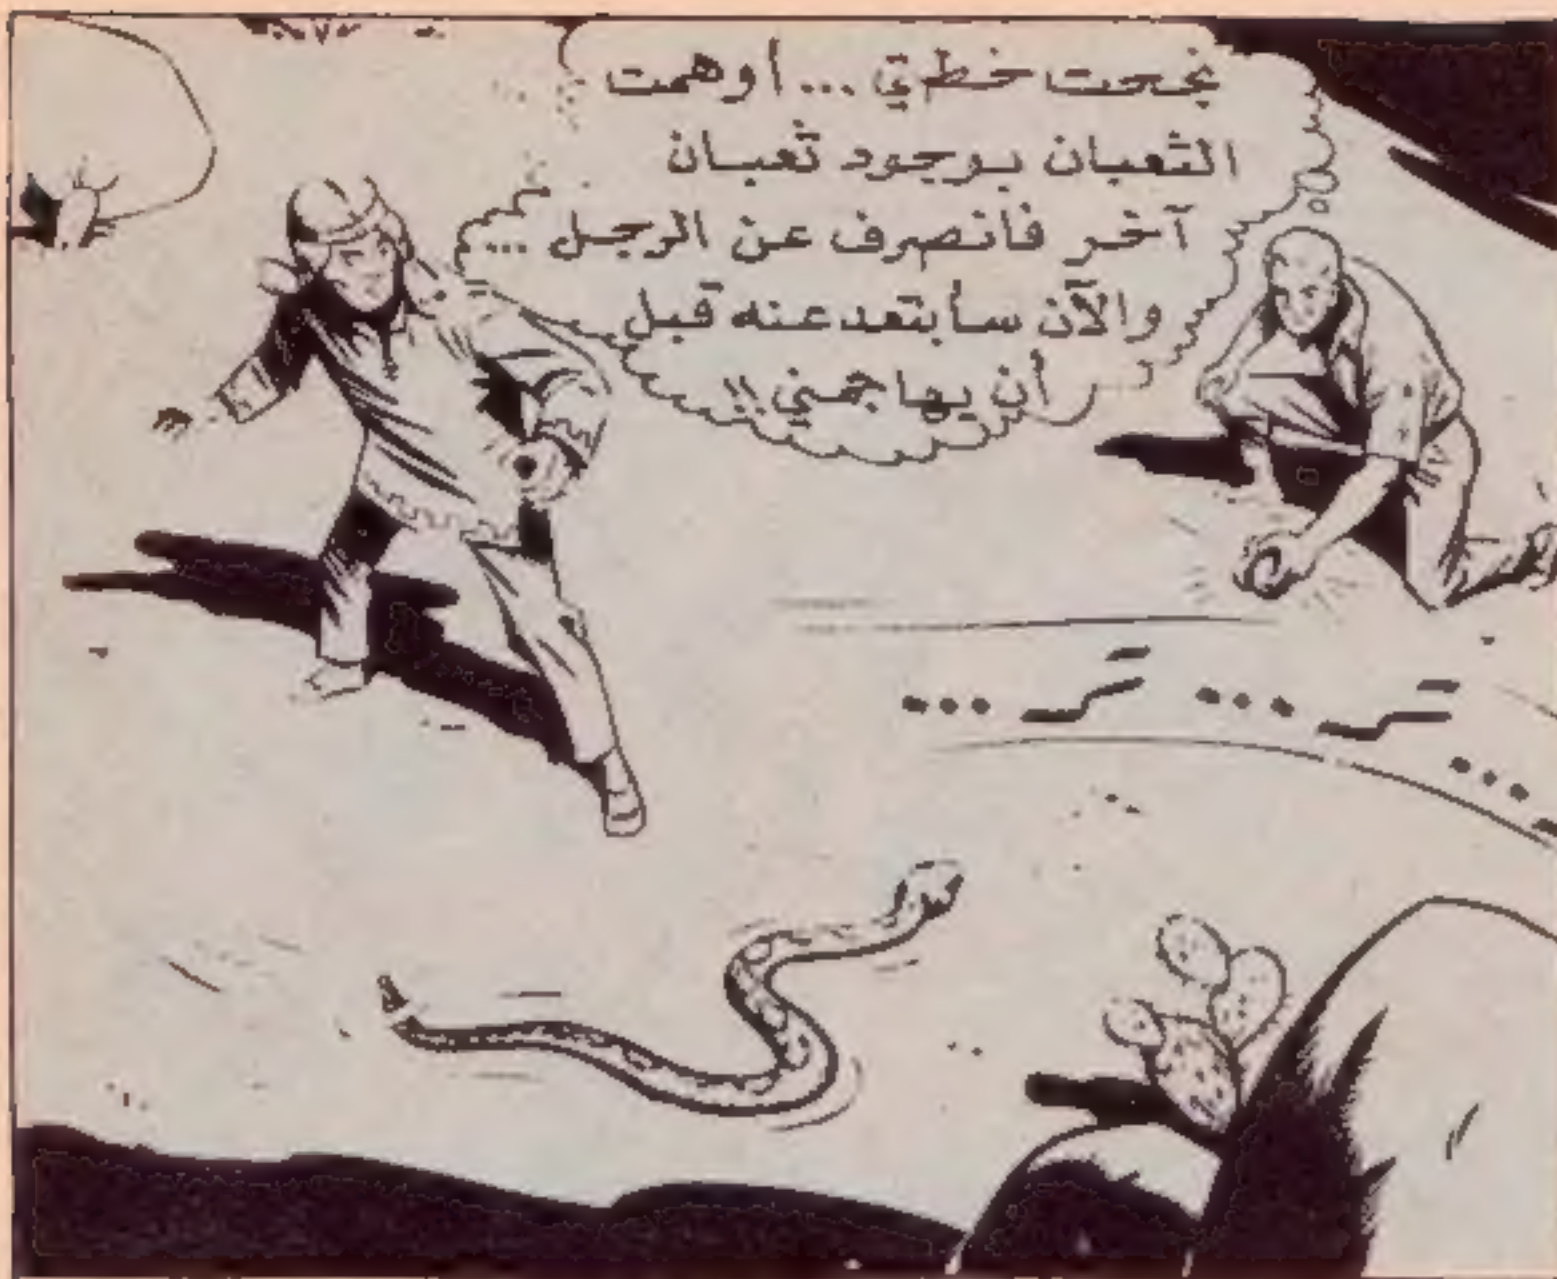 نجحت خطتي ... أوهمت
الثعبان بوجود ثعبان
آخر فانصرف عن الرجل ...
والآن سأبتعد عنه قبل
أن يهاجمني !!
تـ ... تـ ...